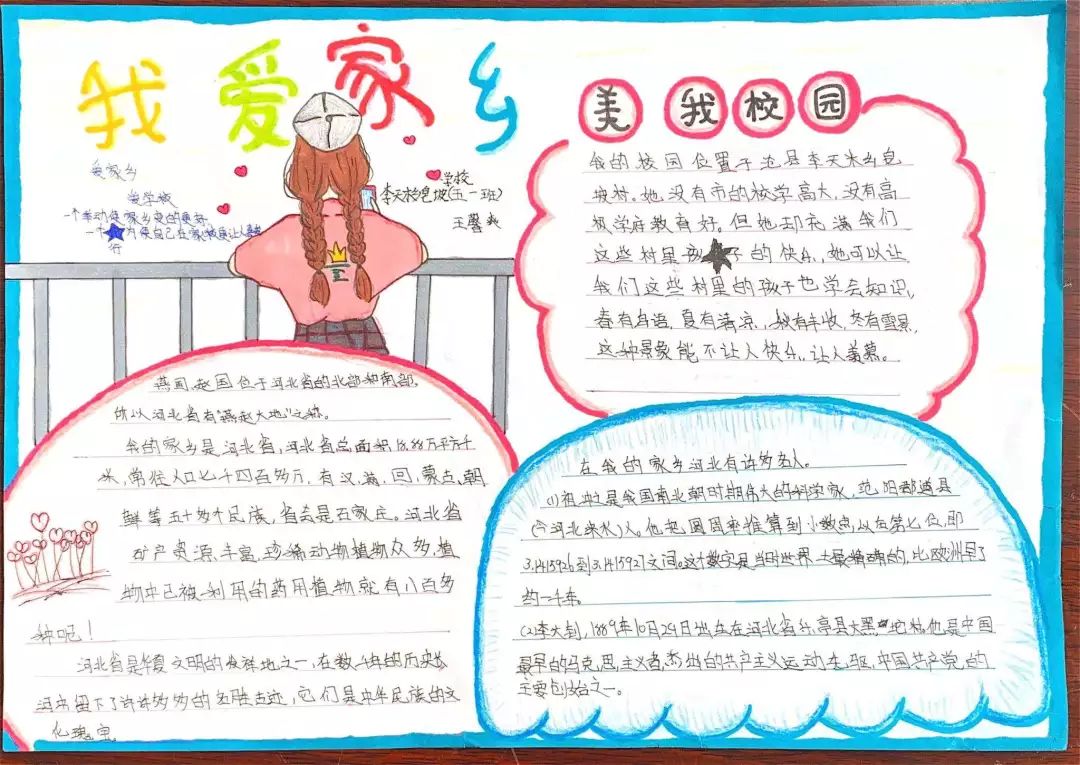 我爱家乡
爱家乡
爱学校
一个举动使家乡变的更好
一个 为使自己在家 更让人
行
学校
李天木 皂坡(五一班)
王馨
美我校园
我的校园位置于 县李天木乡皂
坡村。她没有市的校学高大,没有高
级学府教育好。但她却充满我们
这些村里孩 子的快乐,她可以让
我们这些村里的孩子也学会知识,
春有 语,夏有清凉,秋有丰收,冬有雪景,
这种景象能不让人快乐,让人羡慕。
燕国、赵国位于河北省的北部和南部,
所以河北省有“燕赵大地”之称。
我的家乡是河北省,河北省总面积18.88万平方千
米,常住人口七千四百多万,有汉、满、回、蒙古、朝
鲜等五十多个民族,省会是石家庄。河北省
矿产资源丰富,珍稀动物植物众多,植
物中已被利用的药用植物就有八百多
种呢!
河北省是华夏文明的发祥地之一,在数千年的历史长
河中留下了许许多多的名胜古迹,它们是中华民族的文
化瑰宝。
在我的家乡河北有许多名人。
(1)祖冲之是我国南北朝时期伟大的科学家,范阳郡遒县
(今河北来水)人。他把圆周率推算到小数点以右第七位,即
3.1415926到3.1415927之间。这个数字是当时世界上最精确的,比欧洲早了
约一千年。
(2)李大钊,1889年10月29日出生在河北省乐亭县大黑坨村,他是中国
最早的马克思主义者,杰出的共产主义运动先驱,中国共产党的
主要创始之一。